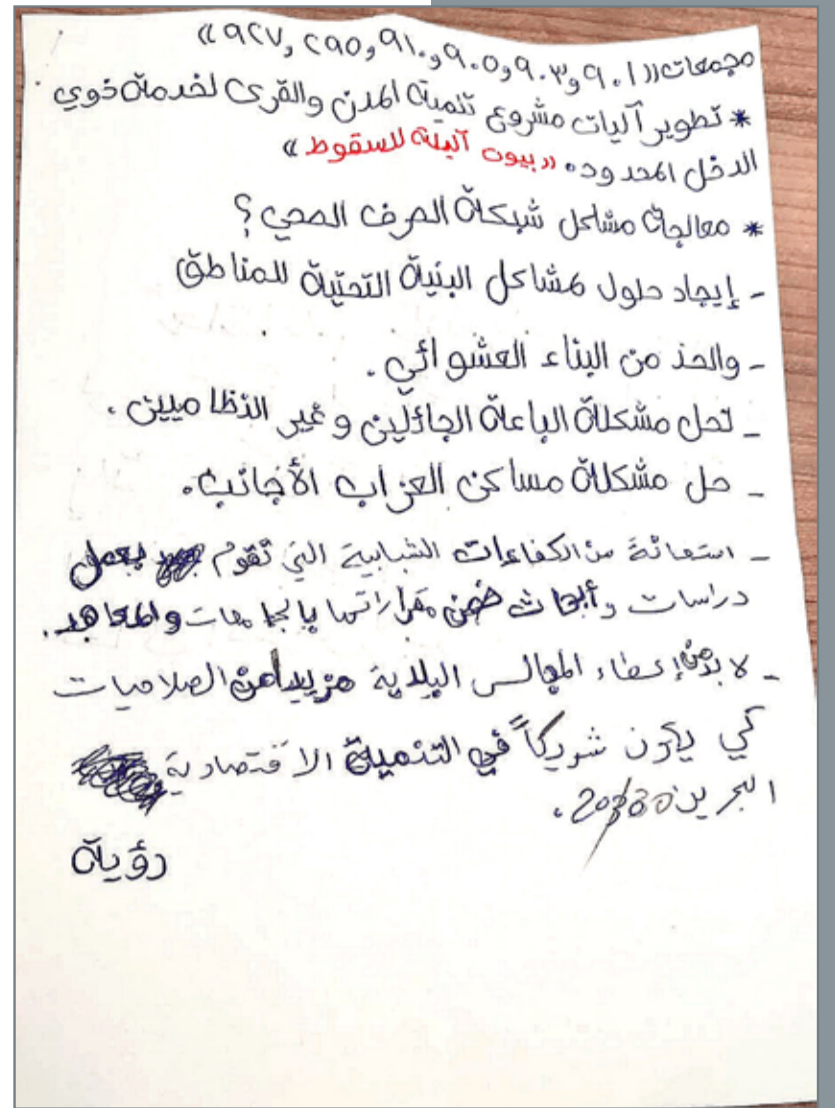 مجمعات «٩٠١ و٩٠٣ و٩٠٥ و٩١٠ و٢٩٥ و٩٢٧»
* تطوير آليات مشروع تنمية المدن والقرى لخدمة ذوي
الدخل المحدود. «بيوت آيلة للسقوط»
* معالجة مشاكل شبكة الصرف الصحي؟
- إيجاد حلول لمشاكل البنية التحتية للمناطق
- والحد من البناء العشوائي.
- لحل مشكلة الباعة الجائلين وغير النظاميين.
- حل مشكلة مساكن العزاب الأجانب.
- استعانة من الكفاءات الشبابية التي تقوم بعمل
دراسات وأبحاث ضمن مقرراتها بالجامعات والمعاهد.
- لابد من إعطاء المجالس البلدية مزيداً من الصلاحيات
كي يكون شريكاً في التنمية الاقتصادية
البحرين 2030.
رؤية